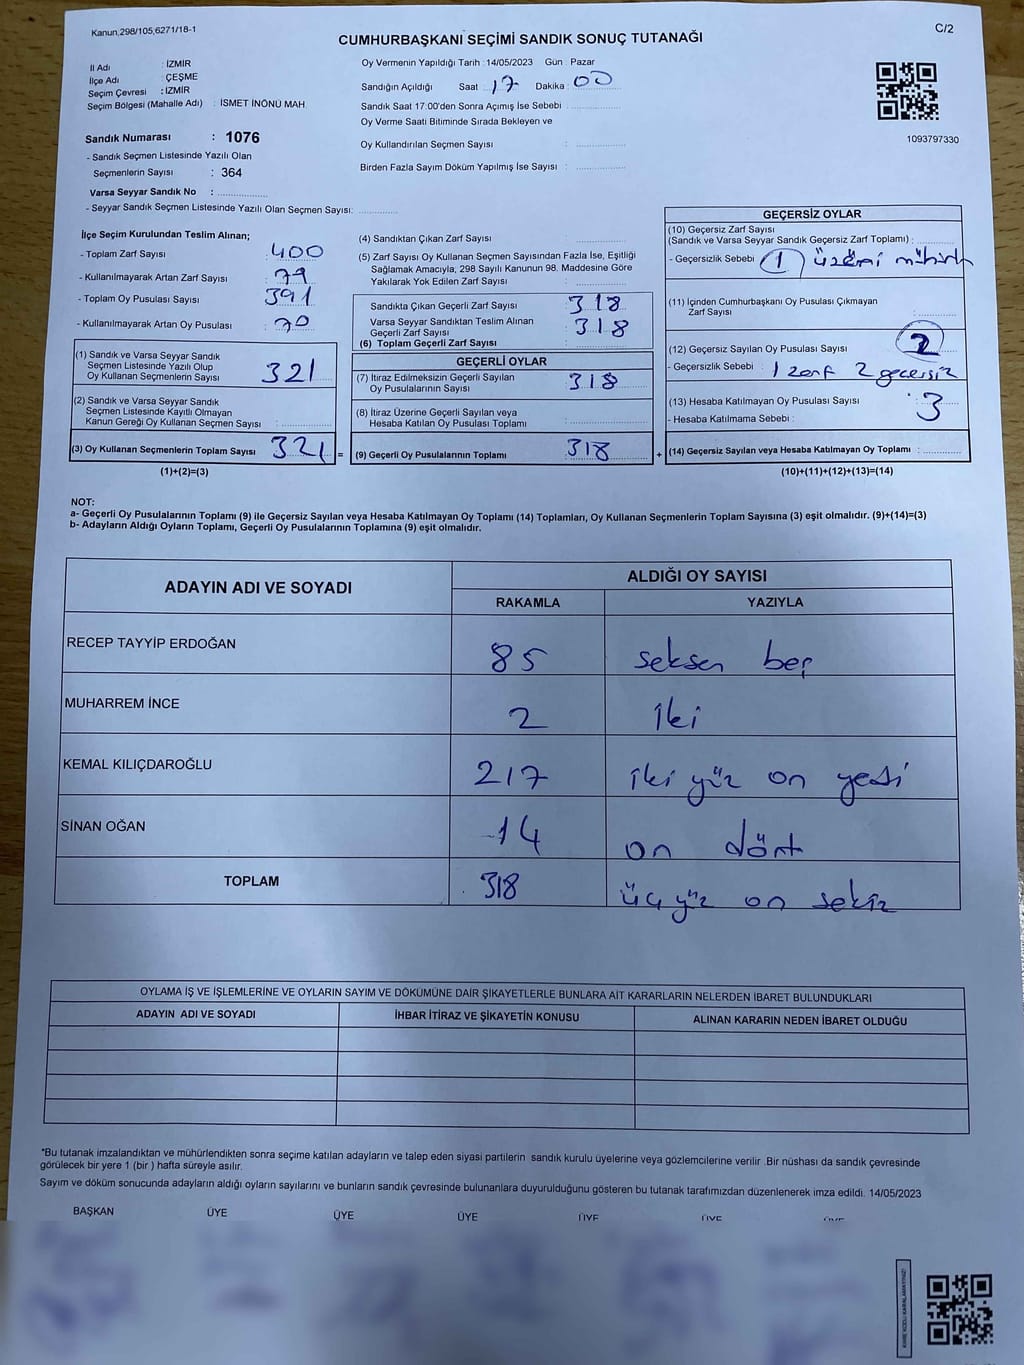 Kanun,298/105,6271/18-1
C/2
CUMHURBAŞKANI SEÇİMİ SANDIK SONUÇ TUTANAĞI
İl Adı : İZMİR
İlçe Adı : ÇEŞME
Seçim Çevresi : İZMİR
Seçim Bölgesi (Mahalle Adı) : İSMET İNÖNÜ MAH.
Sandık Numarası : 1076
- Sandık Seçmen Listesinde Yazılı Olan
Seçmenlerin Sayısı : 364
Varsa Seyyar Sandık No :
- Seyyar Sandık Seçmen Listesinde Yazılı Olan Seçmen Sayısı:
Oy Vermenin Yapıldığı Tarih : 14/05/2023 Gün : Pazar
Sandığın Açıldığı Saat 17 Dakika : 00
Sandık Saat 17.00'den Sonra Açımış İse Sebebi
Oy Verme Saati Bitiminde Sırada Bekleyen ve
Oy Kullandırılan Seçmen Sayısı :
Birden Fazla Sayım Döküm Yapılmış İse Sayısı :
1093797330
İlçe Seçim Kurulundan Teslim Alınan;
- Toplam Zarf Sayısı : 400
- Kullanılmayarak Artan Zarf Sayısı : 79
- Toplam Oy Pusulası Sayısı : 391
- Kullanılmayarak Artan Oy Pusulası : 70
(1) Sandık ve Varsa Seyyar Sandık
Seçmen Listesinde Yazılı Olup
Oy Kullanan Seçmenlerin Sayısı 321
(2) Sandık ve Varsa Seyyar Sandık
Seçmen Listesinde Kayıtlı Olmayan
Kanun Gereği Oy Kullanan Seçmen Sayısı :
(3) Oy Kullanan Seçmenlerin Toplam Sayısı 321 =
(1)+(2)=(3)
(4) Sandıktan Çıkan Zarf Sayısı :
(5) Zarf Sayısı Oy Kullanan Seçmen Sayısından Fazla İse, Eşitliği
Sağlamak Amacıyla, 298 Sayılı Kanunun 98. Maddesine Göre
Yakılarak Yok Edilen Zarf Sayısı :
Sandıkta Çıkan Geçerli Zarf Sayısı : 318
Varsa Seyyar Sandıktan Teslim Alınan
Geçerli Zarf Sayısı : 318
(6) Toplam Geçerli Zarf Sayısı :
GEÇERLİ OYLAR
(7) İtiraz Edilmeksizin Geçerli Sayılan
Oy Pusulalarının Sayısı : 318
(8) İtiraz Üzerine Geçerli Sayılan veya
Hesaba Katılan Oy Pusulası Toplamı :
(9) Geçerli Oy Pusulalarının Toplamı : 318 +
GEÇERSİZ OYLAR
(10) Geçersiz Zarf Sayısı
(Sandık ve Varsa Seyyar Sandık Geçersiz Zarf Toplamı) :
- Geçersizlik Sebebi : 1
(11) İçinden Cumhurbaşkanı Oy Pusulası Çıkmayan
Zarf Sayısı :
(12) Geçersiz Sayılan Oy Pusulası Sayısı 2
- Geçersizlik Sebebi : 1 zarf 2 geçersiz
(13) Hesaba Katılmayan Oy Pusulası Sayısı : 3
- Hesaba Katılmama Sebebi :
(14) Geçersiz Sayılan veya Hesaba Katılmayan Oy Toplamı :
(10)+(11)+(12)+(13)=(14)
NOT:
a- Geçerli Oy Pusulalarının Toplamı (9) ile Geçersiz Sayılan veya Hesaba Katılmayan Oy Toplamı (14) Toplamları, Oy Kullanan Seçmenlerin Toplam Sayısına (3) eşit olmalıdır. (9)+(14)=(3)
b- Adayların Aldığı Oyların Toplamı, Geçerli Oy Pusulalarının Toplamına (9) eşit olmalıdır.
ADAYIN ADI VE SOYADI
ALDIĞI OY SAYISI
RAKAMLA YAZIYLA
RECEP TAYYİP ERDOĞAN 85 seksen beş
MUHARREM İNCE 2 iki
KEMAL KILIÇDAROĞLU 217 iki yüz on yedi
SİNAN OĞAN 14 on dört
TOPLAM 318 üç yüz on sekiz
OYLAMA İŞ VE İŞLEMLERİNE VE OYLARIN SAYIM VE DÖKÜMÜNE DAİR ŞİKAYETLERLE BUNLARA AİT KARARLARIN NELERDEN İBARET BULUNDUKLARI
ADAYIN ADI VE SOYADI İHBAR İTİRAZ VE ŞİKAYETİN KONUSU ALINAN KARARIN NEDEN İBARET OLDUĞU
*Bu tutanak imzalandıktan ve mühürlendikten sonra seçime katılan adayların ve talep eden siyasi partilerin sandık kurulu üyelerine veya gözlemcilerine verilir .Bir nüshası da sandık çevresinde
görülecek bir yere 1 (bir ) hafta süreyle asılır.
Sayım ve döküm sonucunda adayların aldığı oyların sayılarını ve bunların sandık çevresinde bulunanlara duyurulduğunu gösteren bu tutanak tarafımızdan düzenlenerek imza edildi. 14/05/2023
BAŞKAN ÜYE ÜYE ÜYE ÜYE ÜYE ÜYE